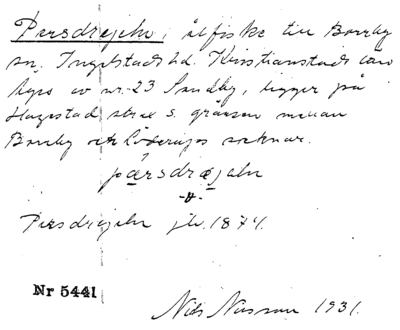 Persdrejeln, i ålfiske till Borrby
sn, Ingelstads hd. Kristianstads län
äges av nr. 23 Sandby, ligger på
Hagestad s. gränsen mellan
Borrby och Löderups socknar.
pærsdræjeln
-"-
Persdrejeln jb. 1874.
Nr 5441
Nils Nilsson 1931.